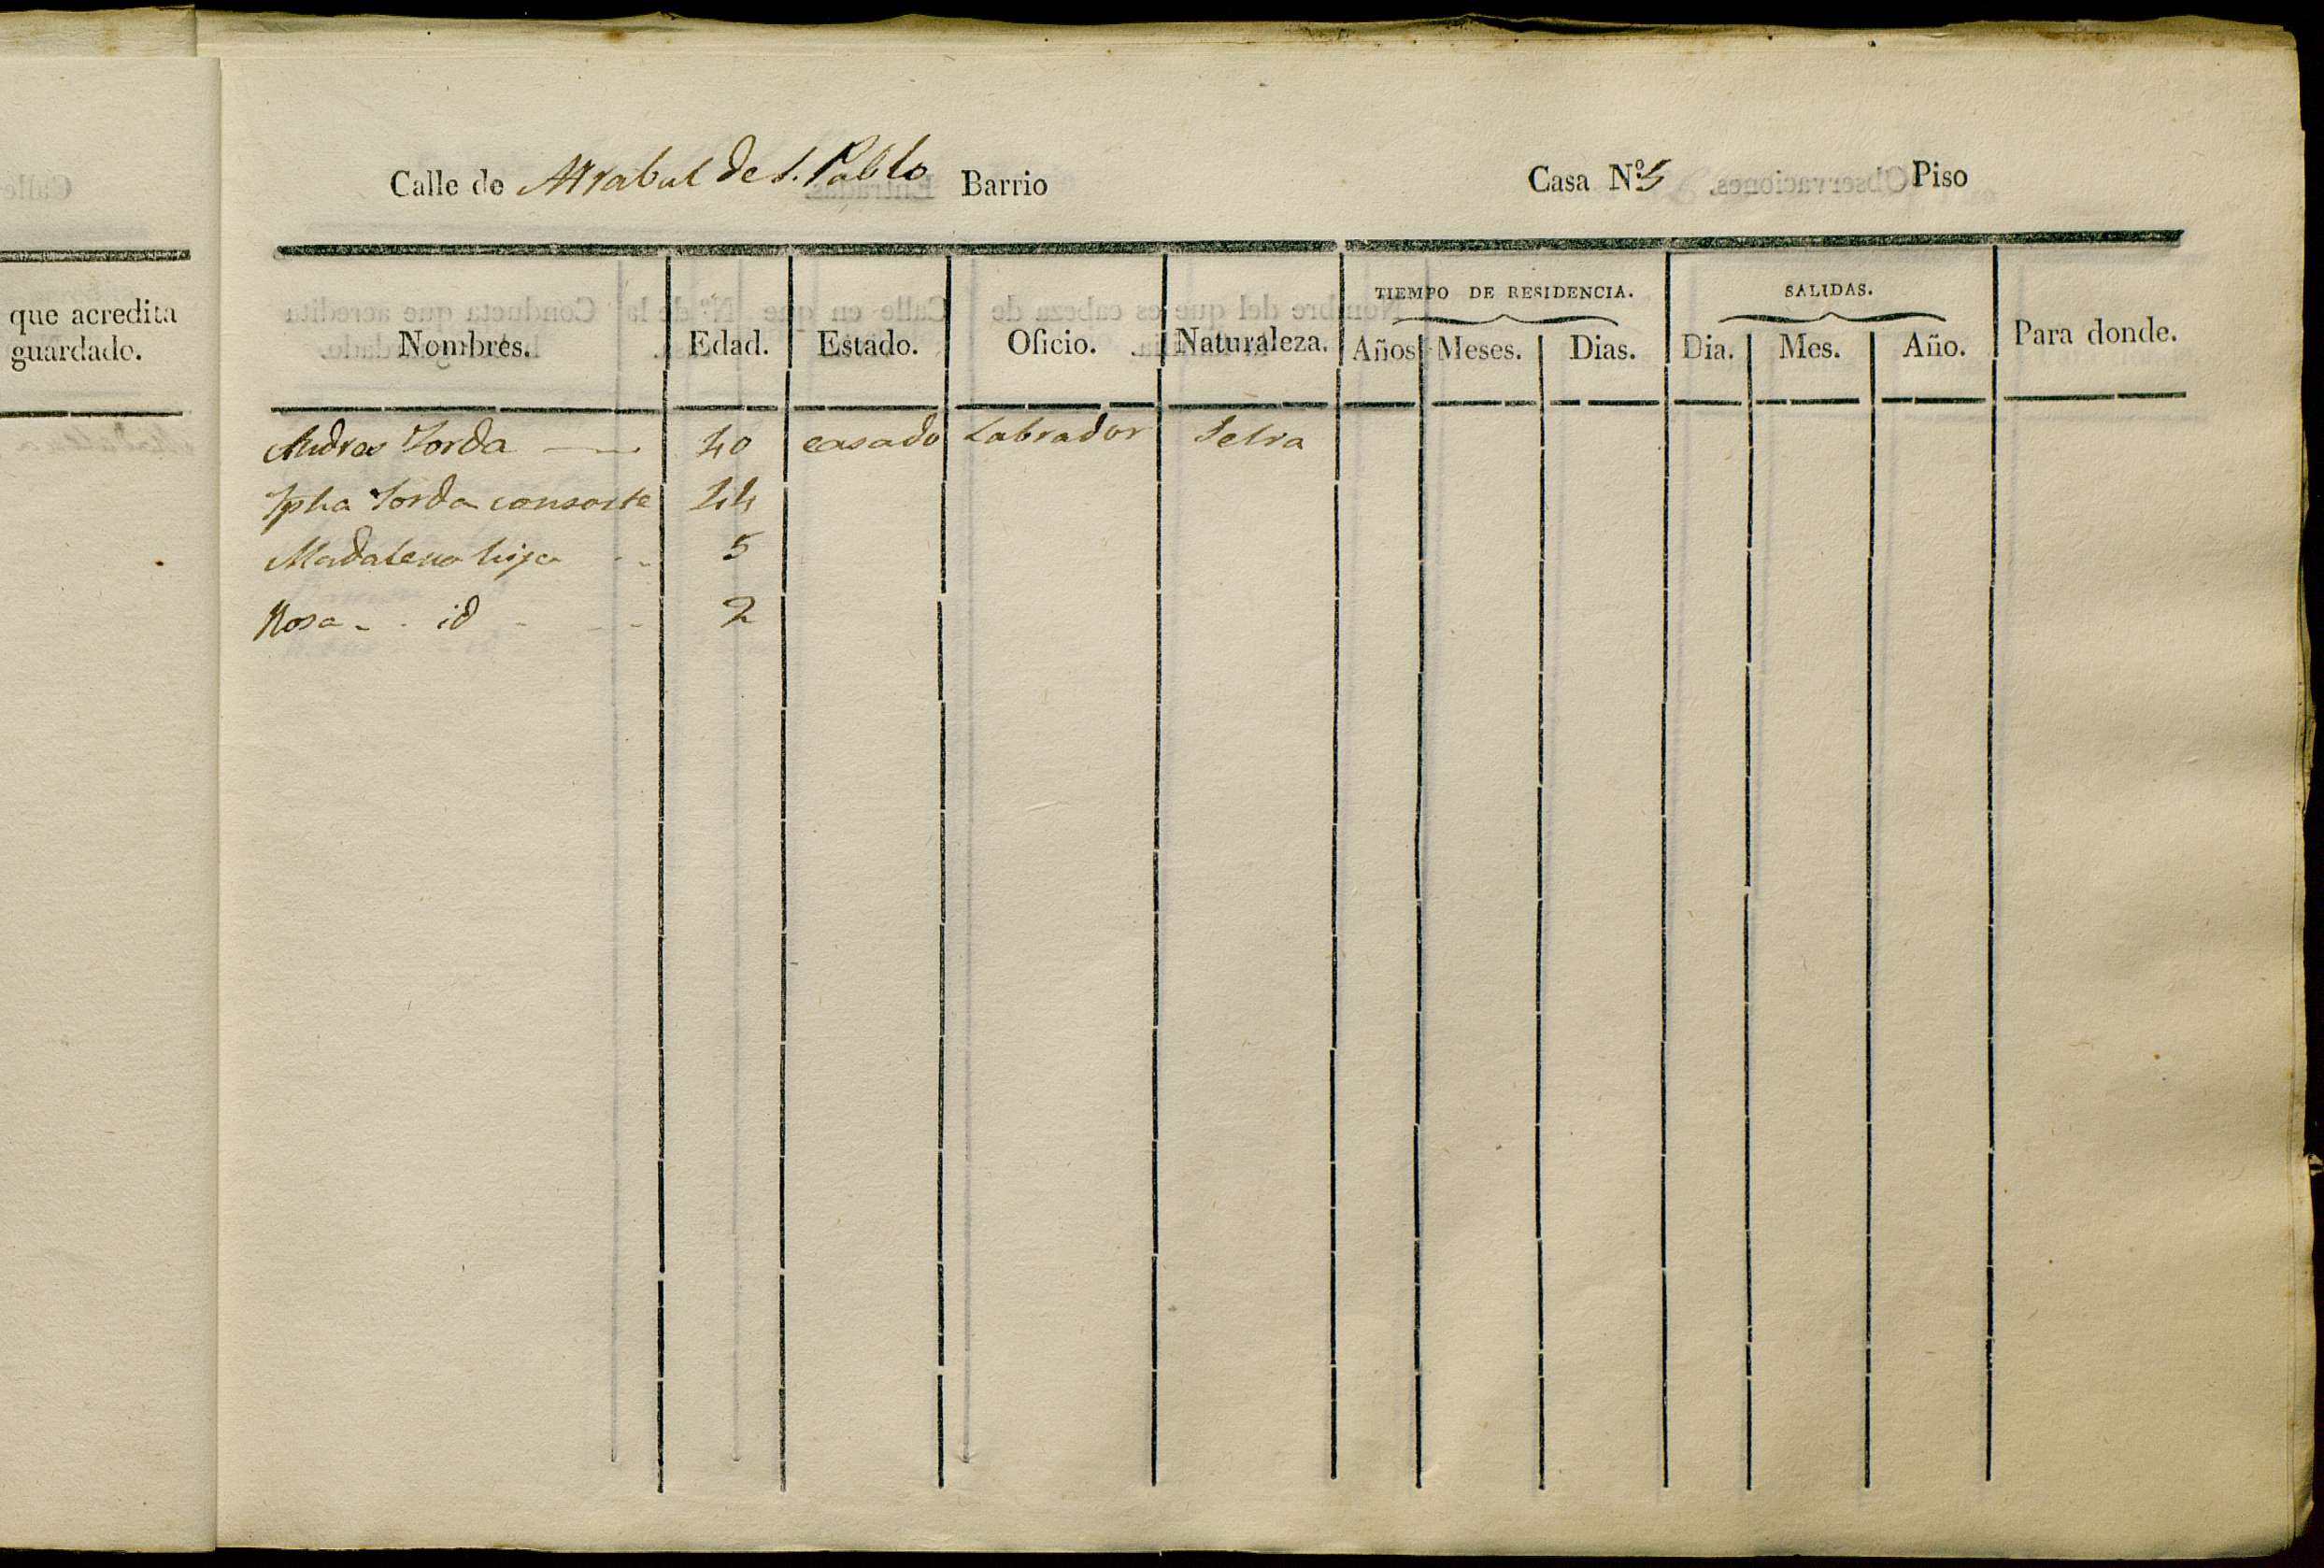 que acredita
guardado.
Calle de Arrabal de S. Pablo Barrio Casa Nº 5 Piso
Nombres. Edad. Estado. Oficio. Naturaleza. TIEMPO DE RESIDENCIA. Años Meses. Dias. SALIDAS. Dia. Mes. Año. Para donde.
Andres Jorda 40 casado Labrador Selva
Jpha Jorda consorte 44
Madalena hija 5
Rosa id 2